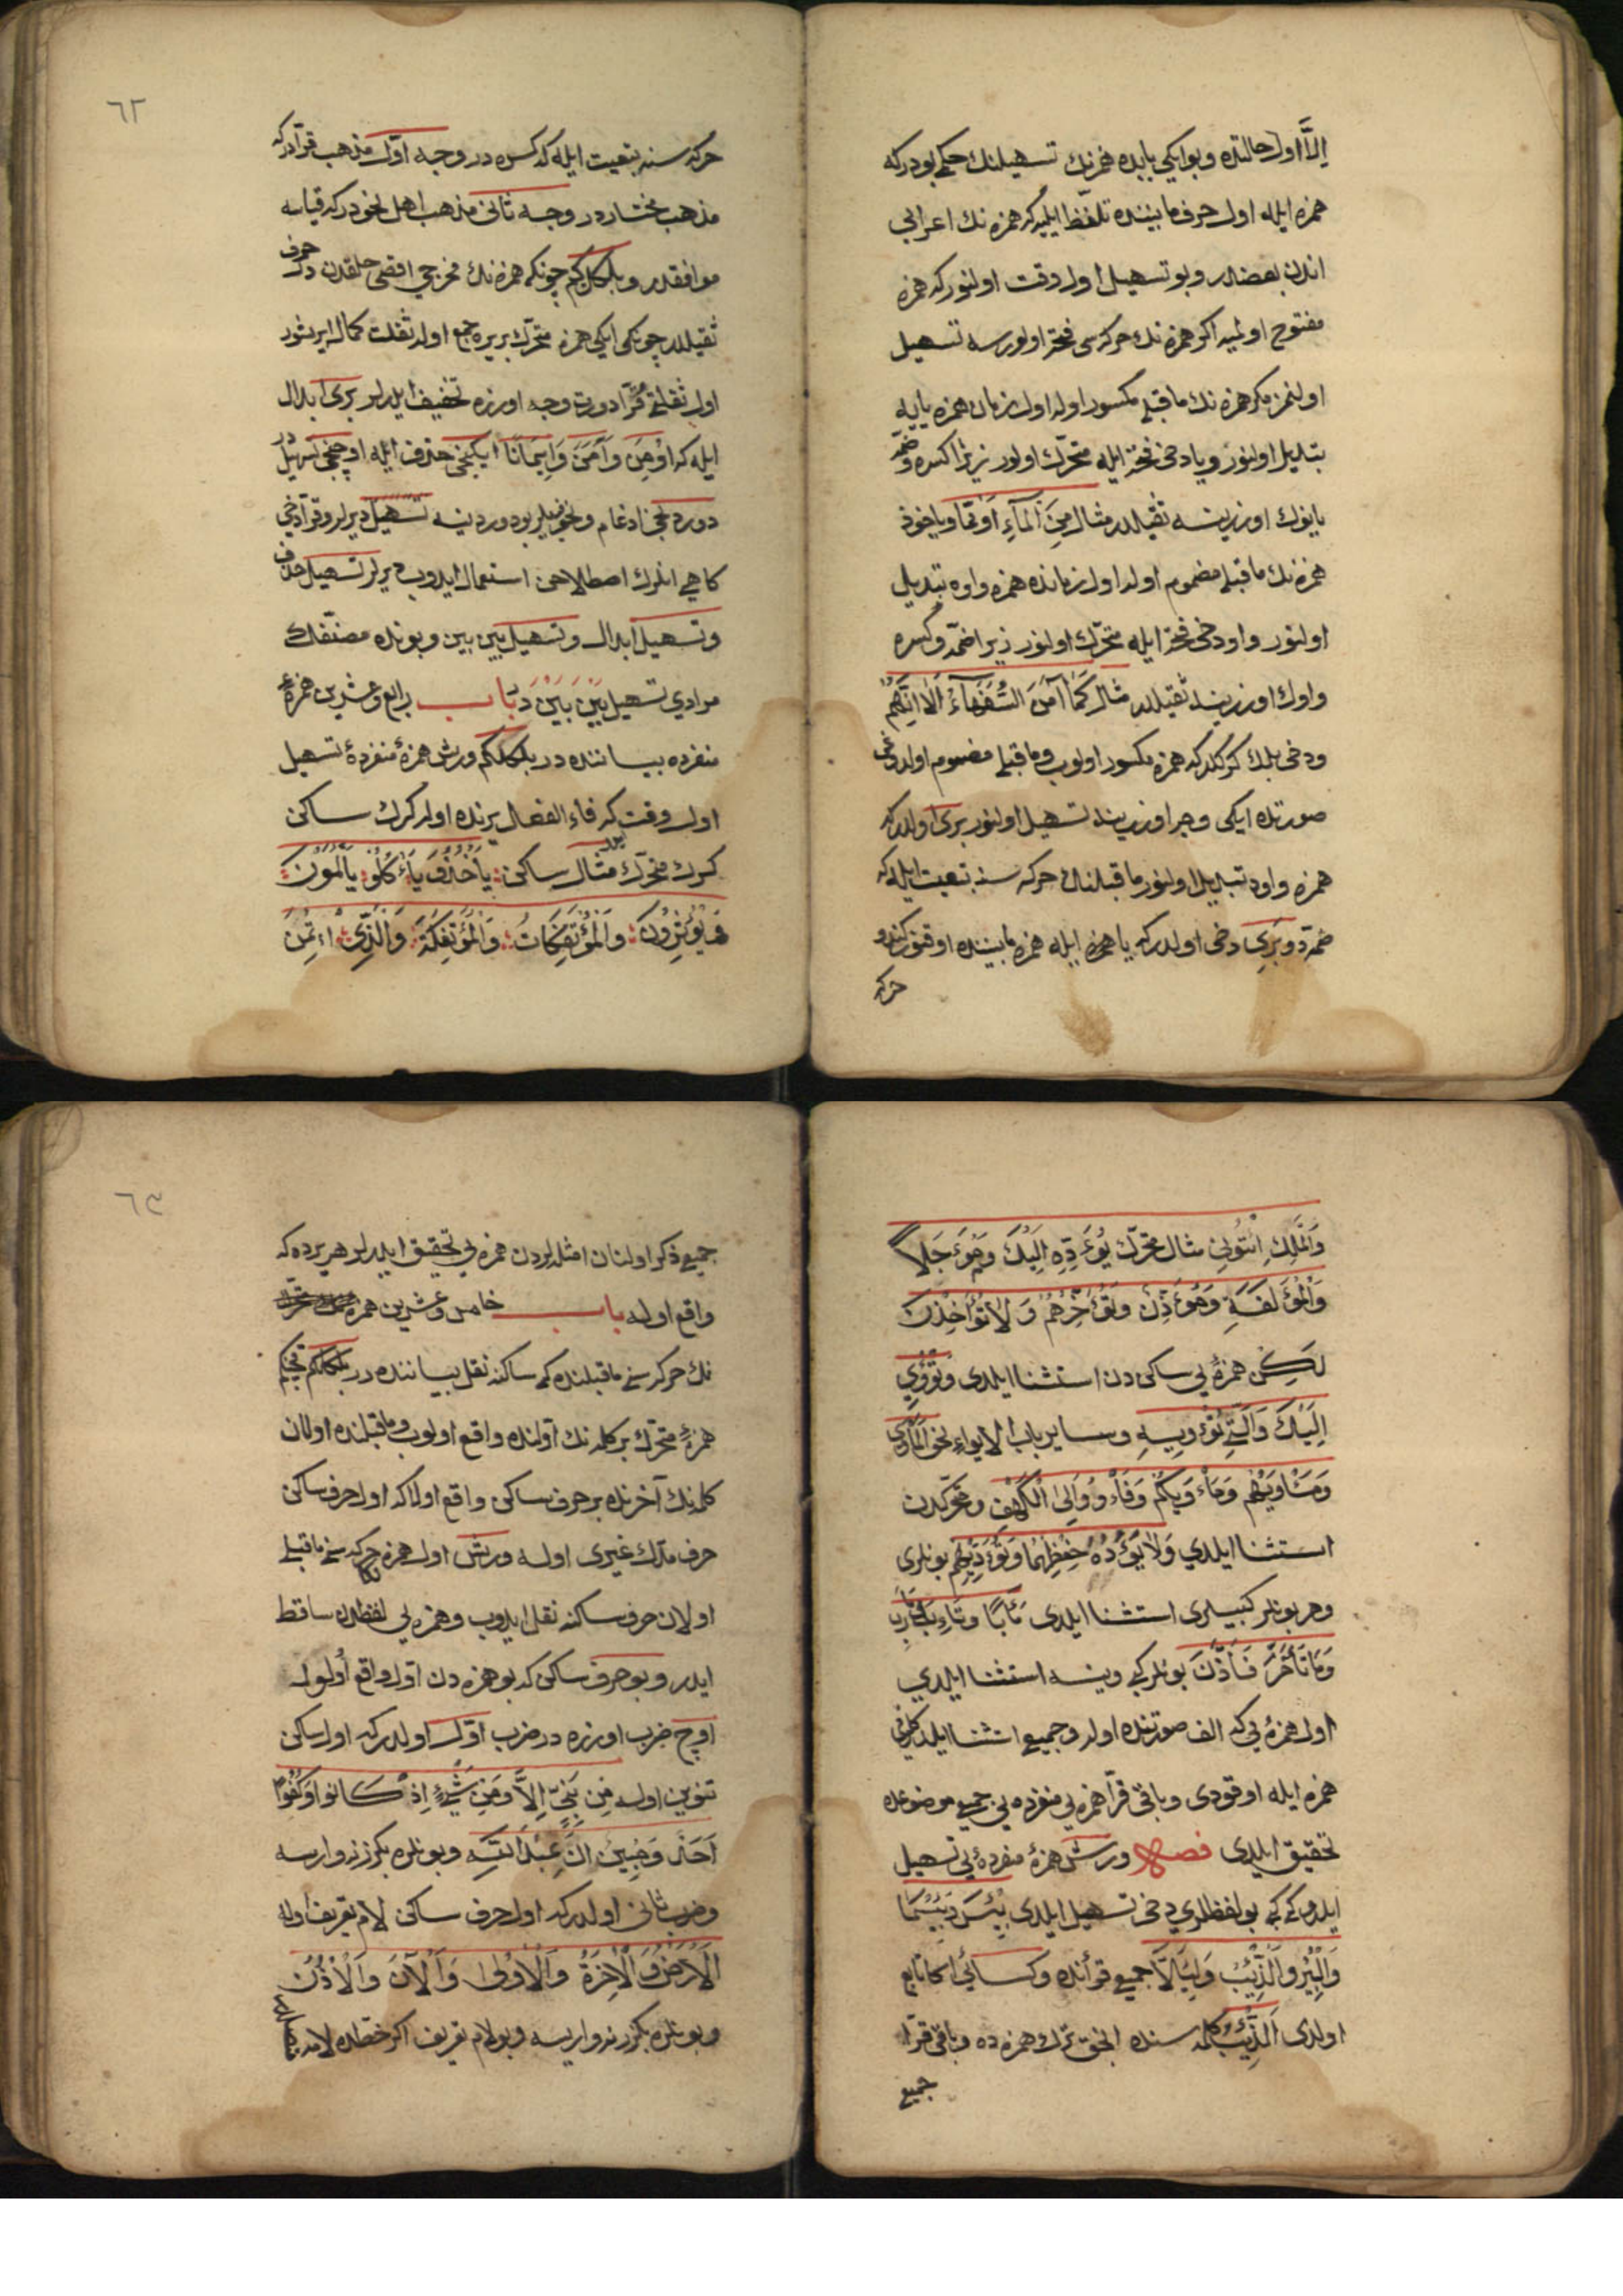 اِلَّا اول حالتده وبو ايكى بابده همزنك تسهيلنك حكمى بودركه
همزه ايله اول حرف مابيننده تلفظ ايليه كه همزه نك اعرابى
اندن بعضدر وبو تسهيل اول وقت اولنور كه همزه
مفتوح اولميه اكر همزه نك حركه سى فتحه اولورسه تسهيل
اولنمز مكر همزه نك ماقبلى مكسور اوله اول زمان همزه يايه
تبديل اولنور ويا دخى فتحه ايله متحرّك اولور زيرا كسره وضمّه
يانوك اوزرينه ثقيلدر مثال مِنَ الْمَآءِ اَوْ مِمَّا وياخود
همزه نك ماقبلى مضموم اولد اول زمانده همزه واوه تبديل
اولنور واو دخى فتحه ايله متحرّك اولنور زيرا ضمّه وكسره
واوك اوزرينه ثقيلدر مثال كَمَا اٰمَنَ السُّفَهَاءُ اَلَا اِنَّهُمْ
ودخى بلمك كركدركه همزه مكسور اولوب وماقبلى مضموم اولدوغى
صورتده ايكى وجه اوزرينه تسهيل اولنور برى اولدركه
همزه واوه تبديل اولنور ماقبلنك حركه سنه تبعيت ايله كه
ضمّه دو وبرى دخى اولدركه يا همزه ايله همزه مابيننده اوقنور كندو
حركه
٦٢
حركه سنه تبعيت ايله كه كسره در وجه اوّل مذهب قرّادركه
مذهب مختاردر وجه ثانى مذهب اهل نحودركه قياسه
موافقدر وبلكل كم چونكه همزه نك مخرجى اقصى حلقدن در حرف
ثقيلدر چونكى ايكى همزه متحرّك بر يره جمع اولد ثقلت كمال ايريشور
اول ثقلتى قُرَّا دورت وجه اوزره تخفيف ايدرلر برى ابدال
ايله كه اُومِنَ وَاٰمَنَ وَاِيمَانًا ايكنجى حذف ايله اوچنجى تسهيل در
دوردنجى ادغام ونحويلر بو دوردينه تسهيل ديرلر وقرّا دخى
كاهى انلرك اصطلاحن استعمال ايدوب ديرلر تسهيل حذف
وتسهيل ابدال وتسهيل بين بين وبونده مصنّفك
مرادى تسهيل بَيْنَ بَيْنَ دَ باب رابع وعشرين همزهٔ
منفرده بياننده در بلكل كم ورش همزهٔ منفردهٔ تسهيل
اول وقت كه فاء الفعل يرنده اوله كرك ساكن
كرك متحرّك مثال ساكن يَاْخُذُ يَاْكُلُوْ يَاْلَمُونَ
وَيُؤْثِرُونَ وَالْمُؤْتَفِكَاتُ وَالْمُؤْتَفِكَةَ وَالَّذِى اؤْتُمِنَ
وَالْمَلِكِ ائْتُونِى مثال متحرّك يُؤَدِّهِ اِلَيْكَ وَمُؤَجَّلًا
وَالْمُؤَلَّفَةِ وَمُؤَذِّنٌ ويُؤَخِّرْهُمْ وَلَا تُؤَاخِذْنَا
لٰكِن همزه يى ساكن دن استثنا ايلدى وَتُؤْوِى
اِلَيْكَ وَالَّتِى تُؤْوِيهِ وساير باب الايواء نحو الْمَأْوٰى
وَمَأْوٰيهُمْ وَمَأْوٰيكُمْ وَفَأْوُوا اِلَى الْكَهْفِ ومتحرّكدن
استثنا ايلدى وَلَا يَؤُدُهُ حِفْظُهُمَا وَتَؤُزُّهُمْ بونلرى
وهر بونلر كبيلرى استثنا ايلدى مَآبًا
وَمَا تَأَخَّرَ فَاَذَّنَ بونلر كبى وينه استثنا ايلدى
اول همزه يى كه الف صورتنده اوله وجميع استثنا ايلديكلرنى
همزه ايله اوقودى وباقى قرّا همزه يى منفرده يى جميع موضعده
تحقيق ايلدى فصل ورش همزهٔ منفرده يى تسهيل
ايلدوكى كبى بو لفظلرى دخى تسهيل ايلدى بِئْسَ وَبِئْسَمَا
وَالْبِئْرِ وَالذِّئْبُ وَلِئَلَّا جميع قرآنده وكسائى اكا تابع
اولدى اَلذِّئْبُ كلمه سنده انجق ترك همزه ده وباقى قرّا
جميع
٦٣
جميع ذكر اولنان امثله لردن همزه يى تحقيق ايدرلر هر يرده كه
واقع اوله باب خامس وعشرين همزهٔ
نك حركه سى ماقبلنده كى ساكنه نقل بياننده در بلكل كم
همزهٔ متحرّك بر كلمه نك اوّلنده واقع اولوب وماقبلنده اولان
كلمه نك آخرنده بر حرف ساكن واقع اولا كه اول حرف ساكن
حرف مدّك غيرى اوله ورش اول همزه نك حركه سنى ماقبلى
اولان حرف ساكنه نقل ايدوب وهمزه يى لفظدن ساقط
ايدر وبو حرف ساكن كه بو همزه دن اوّل واقع اولور
اوچ ضرب اوزره در ضرب اوّل اولدركه اول ساكن
تنوين اوله مِن نَبِىٍّ اِلَّا وَمِنْ شَىْءٍ اِذْ كَانُوا وَكُفُوًا
اَحَدٌ وَمُبِينٌ اَنِ اعْبُدُوا اللّٰهَ وبونلره بكزر نه وارسه
وضرب ثانى اولدركه اول حرف ساكن لام تعريف اوله
اَلْاَرْضُ وَالْاٰخِرَةُ وَالْاُولٰى وَالْاٰنَ وَالْاُذُنَ
وبونلره بكزر نه واريسه وبو لام تعريف اكر خطده لامه